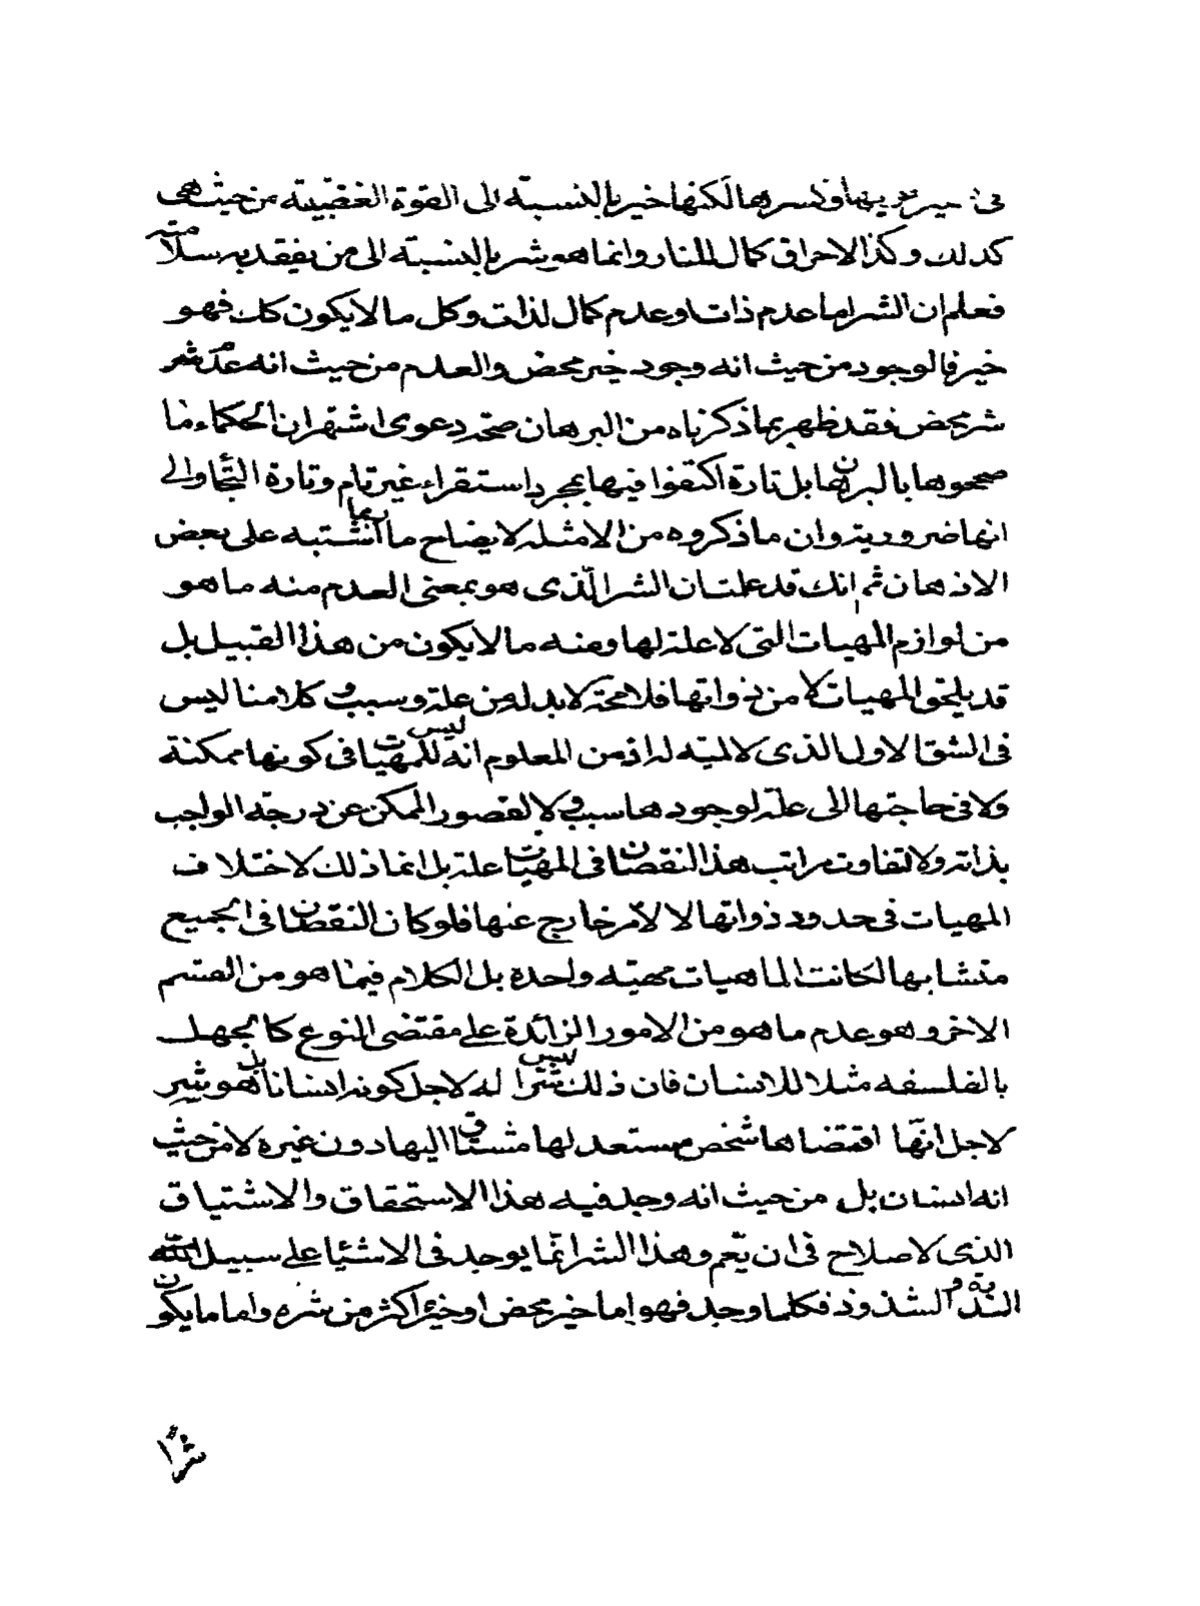 في وكسرها لكنها خير بالنسبة الى القوة الغضبية من حيث هي
كذلك وكذا الاحراق كمال للنار وانما هو شر بالنسبة الى من يفقد به سلامته
فعلم ان الشر اما عدم ذات او عدم كمال لذات وكل ما لا يكون كك فهو
خير فالوجود من حيث انه وجود خير محض والعدم من حيث انه عدم
شر محض فقد ظهر بما ذكرناه من البرهان صحة دعوى اشتهر ان الحكماء ما
صححوها بالبرهان بل تارة اكتفوا فيها بمجرد استقراء غير تام وتارة التجاوا الى
انها ضرورية وان ما ذكروه من الامثلة لايضاح ما ربما اشتبه على بعض
الاذهان ثم انك قد علمت ان الشر الذى هو بمعنى العدم منه ما هو
من لوازم المهيات التى لا علة لها ومنه ما لا يكون من هذا القبيل بل
قد يلحق المهيات لا من ذواتها فلا محة لا بد له من علة وسبب و كلامنا ليس
فى الشق الاول الذى لا لمية له اذ من المعلوم انه ليس للمهيات فى كونها ممكنة
ولا فى حاجتها الى علة لوجودها سبب و لا لقصور الممكن عن درجة الواجب
بذاته ولا لتفاوت مراتب هذا النقصان فى المهيات علة بل انما ذلك لاختلاف
المهيات فى حدود ذواتها لا لامر خارج عنها فلو كان النقصان فى الجميع
متشابها لكانت الماهيات مهية واحدة بل الكلام فيما هو من القسم
الاخر وهو عدم ما هو من الامور الزائدة على مقتضى النوع كالجهل
بالفلسفه مثلا للانسان فان ذلك ليس شرا له لاجل كونه انسانا بل هو شر
لاجل انها اقتضاها شخص مستعد لها مشتاق اليها دون غيره لا من حيث
انه انسان بل من حيث انه وجد فيه هذا الاستحقاق والاشتياق
الذى لا صلاح فى ان يعم وهذا الشر انما يوجد فى الاشيا على سبيل
الندرة و الشذوذ فكلما وجد فهو اما خير محض او خيره اكثر من شره واما ما يكون
شرا